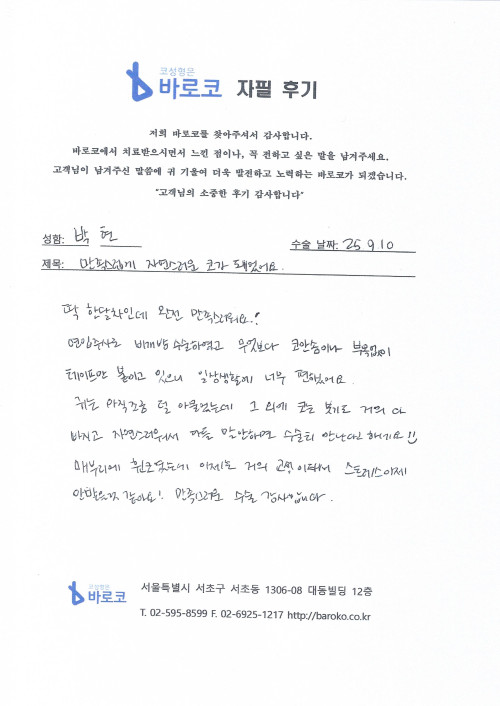 코성형은
바로코 자필 후기
저희 바로코를 찾아주셔서 감사합니다.
바로코에서 치료받으시면서 느낀 점이나, 꼭 전하고 싶은 말을 남겨주세요.
고객님이 남겨주신 말씀에 귀 기울여 더욱 발전하고 노력하는 바로코가 되겠습니다.
"고객님의 소중한 후기 감사합니다"
성함: 박 현 수술 날짜: 25 9.10
제목: 만족스럽게 자연스러운 코가 되었어요.
딱 한달차인데 완전 만족스러워요!
수술하였고 무엇보다 코안솜이나 부목없이
테이프만 붙이고 있으니 일상생활에 너무 편했어요.
귀는 아직조금 덜 아물었는데 그 외에 코는 붓기도 거의 다
빠지고 자연스러워서 다들 말안하면 수술티 안난다고 하네요 !!
매부리에 휜코였는데 이제는 거의 스트레스 이제
안받을것 같아요! 만족스러운 수술 감사합니다.
코성형은
바로코
서울특별시 서초구 서초동 1306-08 대동빌딩 12층
T. 02-595-8599 F. 02-6925-1217 http://baroko.co.kr